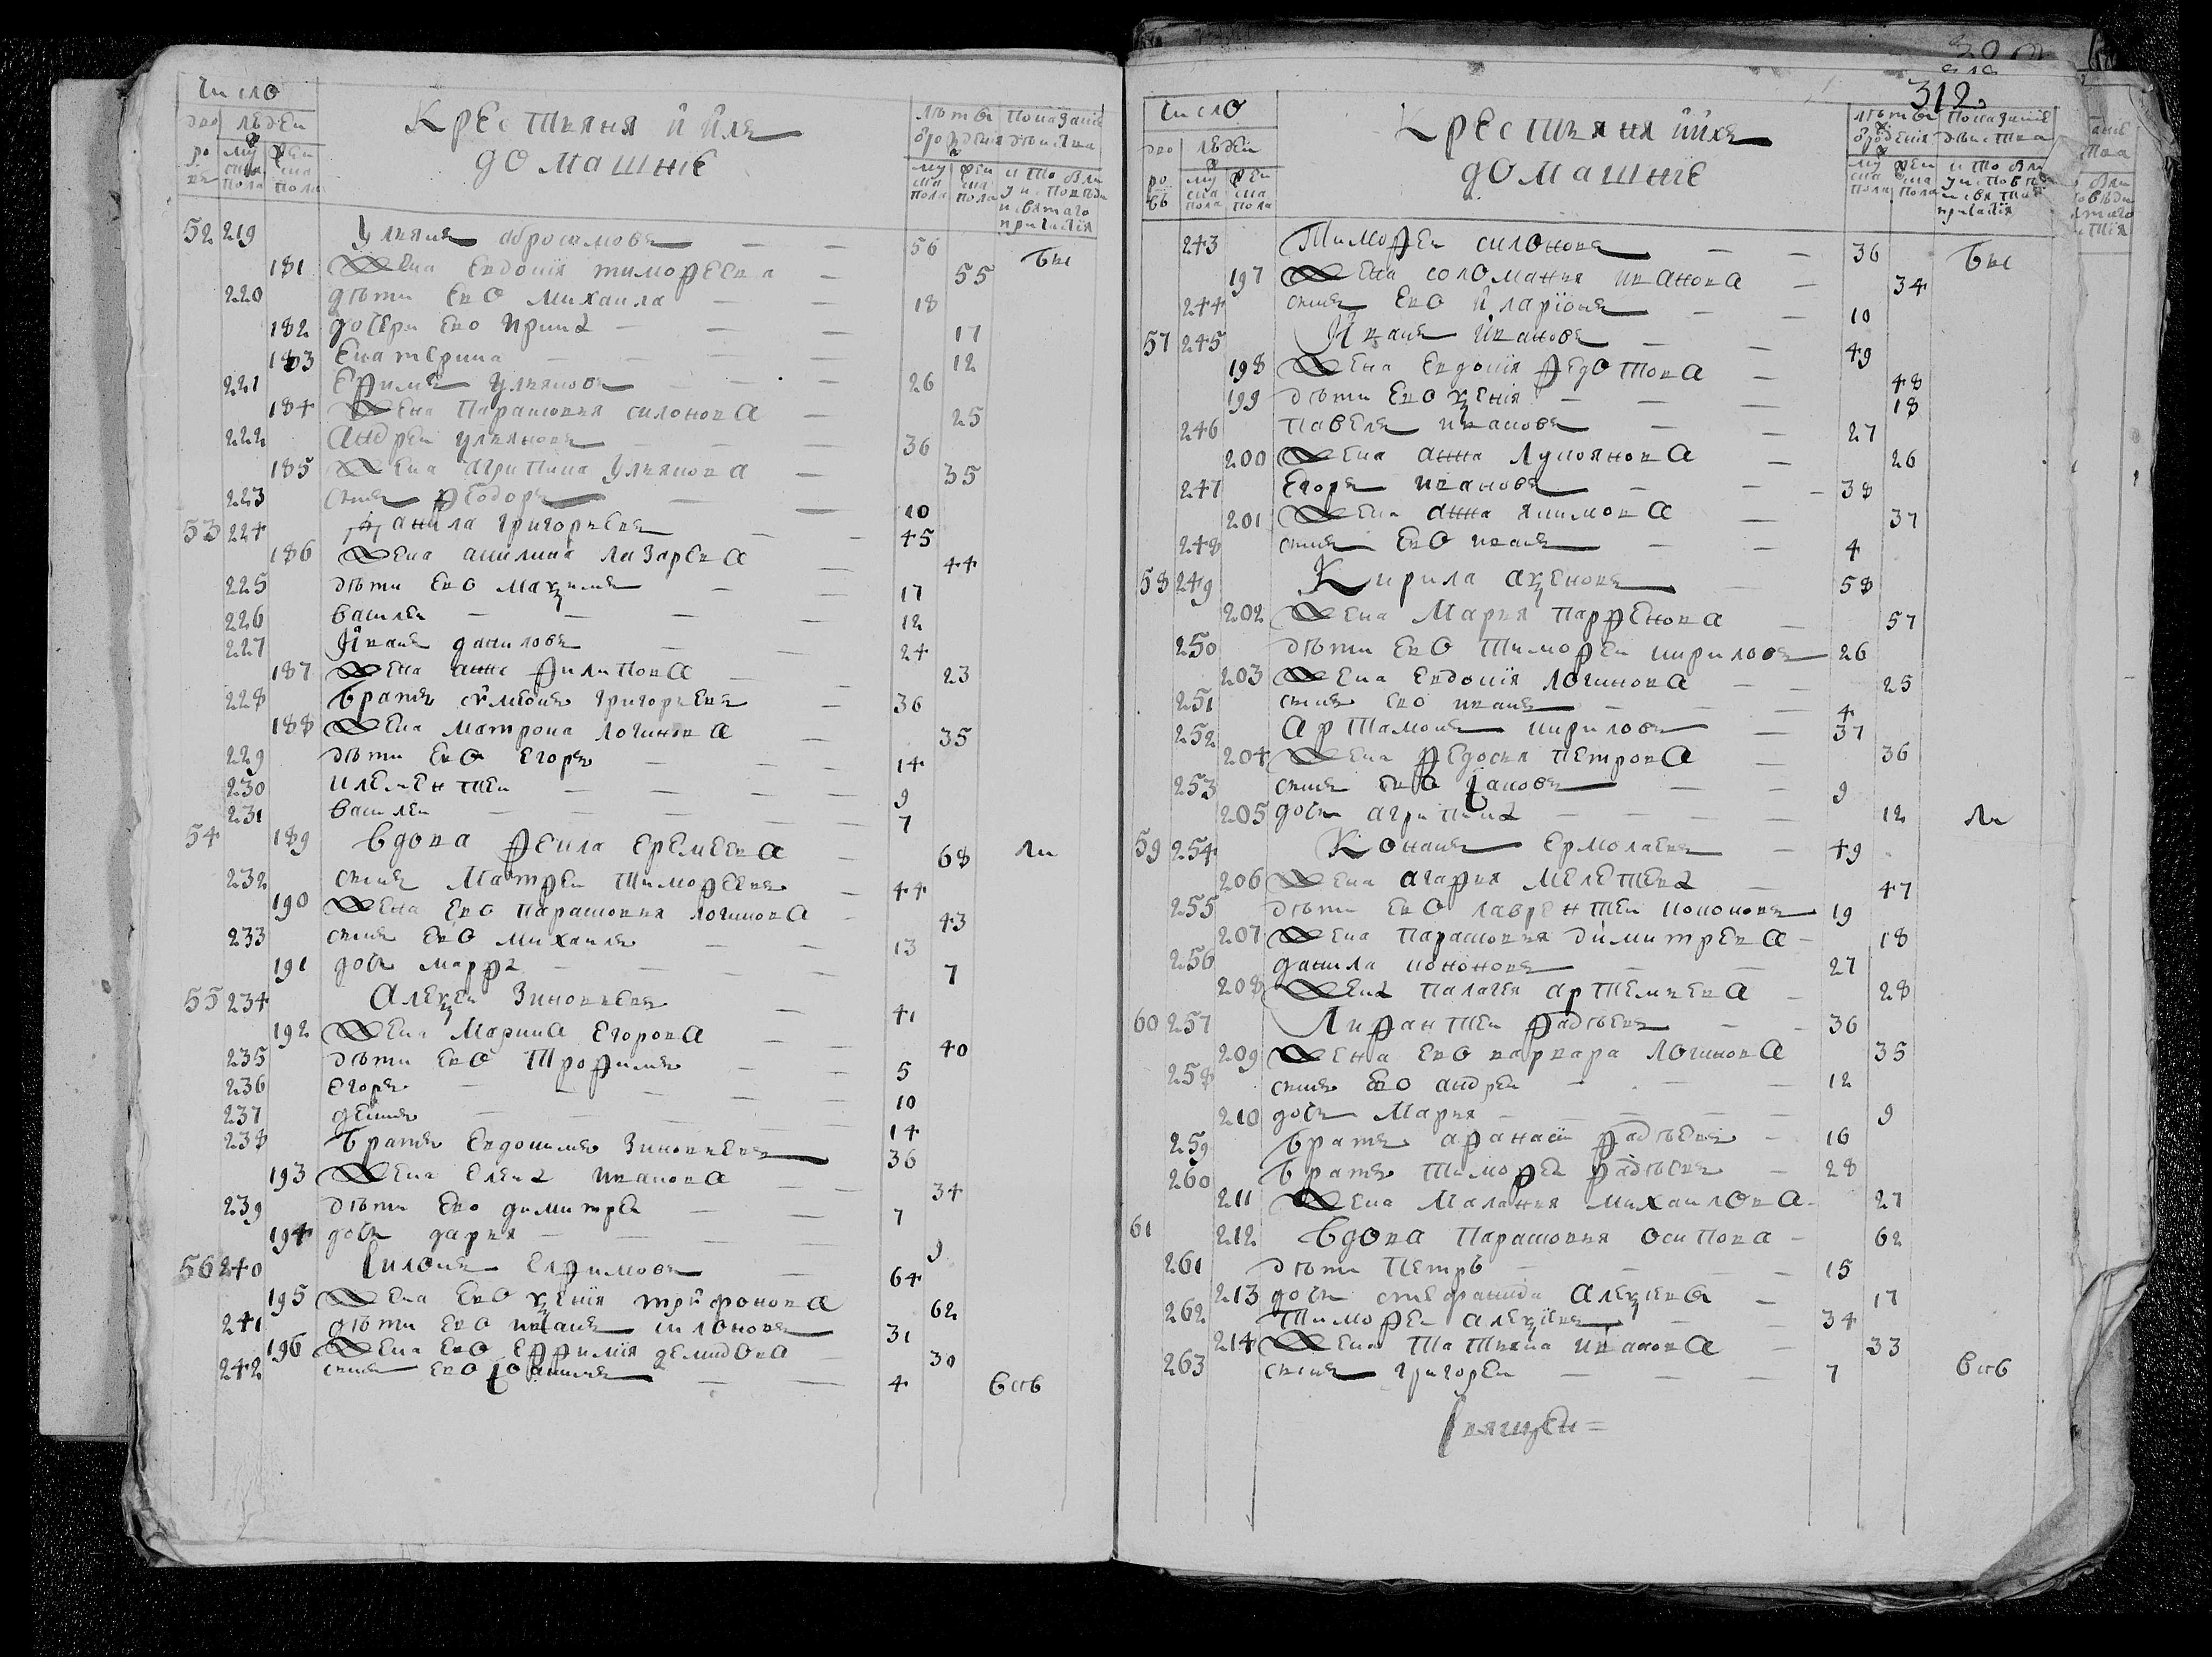 Число
дво людеи
ро му жен
въ ска ска
пола пола
Крестьяня и ихъ
домашние
лѣтъ показание
ѿрождения действа
му жен кто был
ска ска у исповеди
пола пола и святаго
причастия
52 219 Ульянъ абросимовъ 56 бы
181 жена евдокия тимофеева 55
220 дѣти ево михаила 18
182 дочери ево ирина 17
183 екатерина 12
221 ефимъ ульяновъ 26
184 жена парасковья силонова 25
222 андреи ульяновъ 36
185 жена агрипина ульянова 35
223 сынъ феодоръ 10
53 224 данила григорьевъ 45
186 жена акилина лазарева 44
225 дѣти ево маѯимъ 17
226 василеи 12
227 иванъ даниловъ 24
187 жена анна филипова 23
228 братъ сѵмеонъ григорьевъ 36
188 жена матрона логинова 35
229 дѣти ево егоръ 14
230 клементеи 9
231 василеи 7
54 189 вдова фекла еремеева 68 ли
232 сынъ матфеи тимофеевъ 44
190 жена ево парасковья логинова 43
233 сынъ ево михаилъ 13
191 дочь марфа 7
55 234 алеѯеи зиновьевъ 41
192 жена марина егорова 40
235 дѣти ево трофимъ 5
236 егоръ 10
237 денисъ 14
238 братъ евдокимъ зиновьевъ 36
193 жена елена иванова 34
239 дѣти ево димитреи 7
194 дочь дарья 9
56 240 силонъ елфимовъ 64
195 жена ево ѯения трифонова 62
241 дѣти ево иванъ силоновъ 31
196 жена ево ефимия демидова 30
242 сынъ ево иоакимъ 4 всѣ
312
Число
дво людеи
ро му жен
въ ска ска
пола пола
Крестьяня иихъ
домашние
лѣтъ показание
ѿрождения действа
му жен кто был
ска ска у исповѣ
пола пола и свята
причастия
243 тимофеи силоновъ 36 бы
197 жена соломания иванова 34
244 сынъ ево иларионъ 10
57 245 иванъ ивановъ 49
198 жена евдокия федотова 48
199 дѣти ево ѯения 18
246 павелъ ивановъ 27
200 жена анна лукоянова 26
247 егоръ ивановъ 38
201 жена анна якимова 37
248 сынъ ево иванъ 4
58 249 кирила аѯеновъ 58
202 жена марья парфенова 57
250 дѣти ево тимофеи кириловъ 26
203 жена евдокия логинова 25
251 сынъ ево иванъ 4
252 артамонъ кириловъ 37
204 жена федосья петрова 36
253 сынъ ево иаковъ 9
205 дочь агрипина 12 ли
59 254 кононъ ермолаевъ 49
206 жена агафья мелетева 47
255 дѣти ево лаврентеи кононовъ 19
207 жена парасковья димитрева 18
256 данила кононовъ 27
208 жена палагея артемьева 28
60 257 лифантеи фадѣевъ 36
209 жена ево варвара логинова 35
258 сынъ ево андреи 12
210 дочь марья 9
259 братъ афанасеи фадѣевъ 16
260 братъ тимофеи фадѣевъ 28
211 жена маланья михаилова 27
61 212 вдова парасковья осипова 62
261 дѣти петръ 15
213 дочь стефанида алеѯиева 17
262 тимофеи алеѯиевъ 34
214 жена татьяна иванова 33
263 сынъ григореи 7 всѣ
Священ=